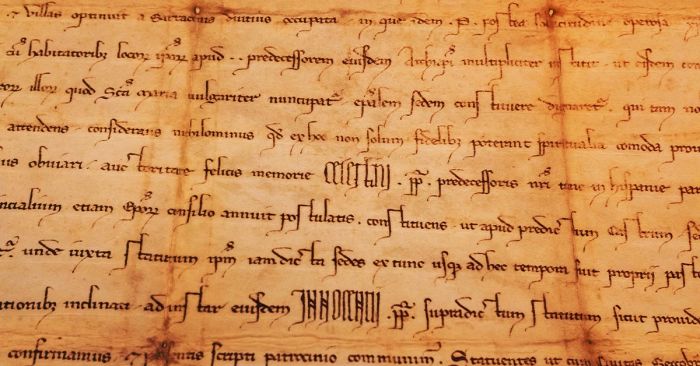 villas optinuit a Sarracenis diutius occupata in que idem . P. postea
habitatoribz locoꝝ ipoꝝ apud .. predecessorem eiusdem Archiepi multipliciter institit ut eisdem
illoꝝ quod Scā Maria vulgariter nuncupatʳ epalem sedem constituere dignaretʳ . qui tam
attendens considerans nichilominus qd ex hoc non solum fidelibz poterant spiritualia comoda
obviari . auctoritate felicis memorie CELESTINI . pp. predecessoris nri tunc in hispanie
etiam Epoꝝ consilio annuit postulatis . constituens ut apud predictum Castrum
unde iuxta statutum ipius iamdicta sedes ex tunc usqꝫ ad hec tempora fuit proprii
inclinati . ad instar eiusdem INNOCENTII . pp. supradictum statutum sicut
confirmamus . et presentis scripti patrocinio communimus . Statuentes ut